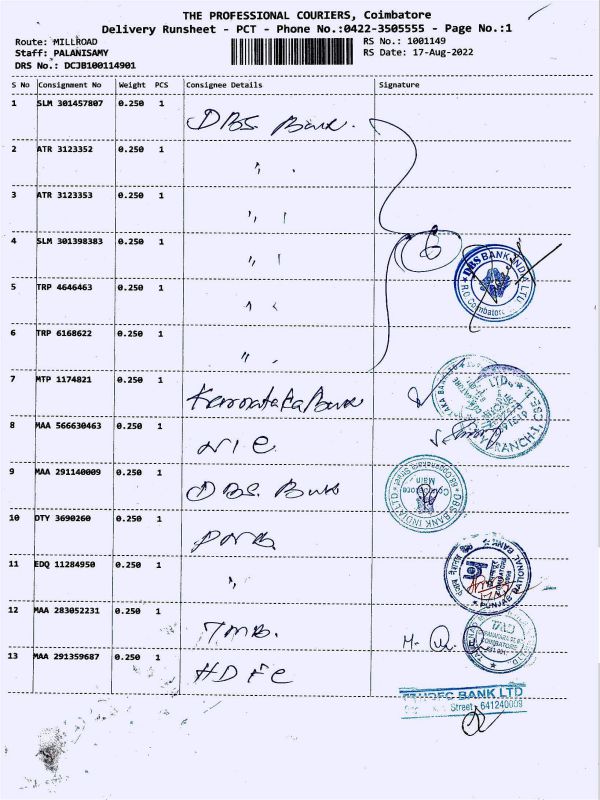 THE PROFESSIONAL COURIERS, Coimbatore
Delivery Runsheet - PCT - Phone No.:0422-3505555 - Page No.:1
Route: MILLROAD RS No.: 1001149
Staff: PALANISAMY RS Date: 17-Aug-2022
DRS No.: DCJB100114901
S No Consignment No Weight PCS Consignee Details Signature
1 SLM 301457807 0.250 1 DBS. Bank.
2 ATR 3123352 0.250 1 ,,
3 ATR 3123353 0.250 1 ,,
4 SLM 301398383 0.250 1 ,,
6
DBS BANK INDIA LTD
R.O Coimbatore
5 TRP 4646463 0.250 1 ,,
6 TRP 6168622 0.250 1 ,,
7 MTP 1174821 0.250 1 Karnataka Bank
LTD.
8 MAA 566630463 0.250 1 NIC
9 MAA 291140009 0.250 1 DBS. Bank
DBS BANK INDIA LTD
Coimbatore
Main
10 DTY 3690260 0.250 1 PNB
11 EDQ 11284950 0.250 1 ,,
PUNJAB NATIONAL BANK
12 MAA 283052231 0.250 1 TMB.
13 MAA 291359687 0.250 1 HDFC
HDFC BANK LTD
Street 641240009